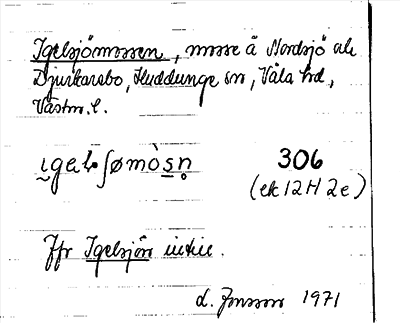 Igelsjömossen, mosse å Nordsjö och
Djurkarsbo, Huddunge sn, Våla hd,
Västm. l.
ɩgəl·ʃømòsn̥ 306
(ek 12 H 2e)
Jfr Igelsjön intill.
L. Jonsson 1971